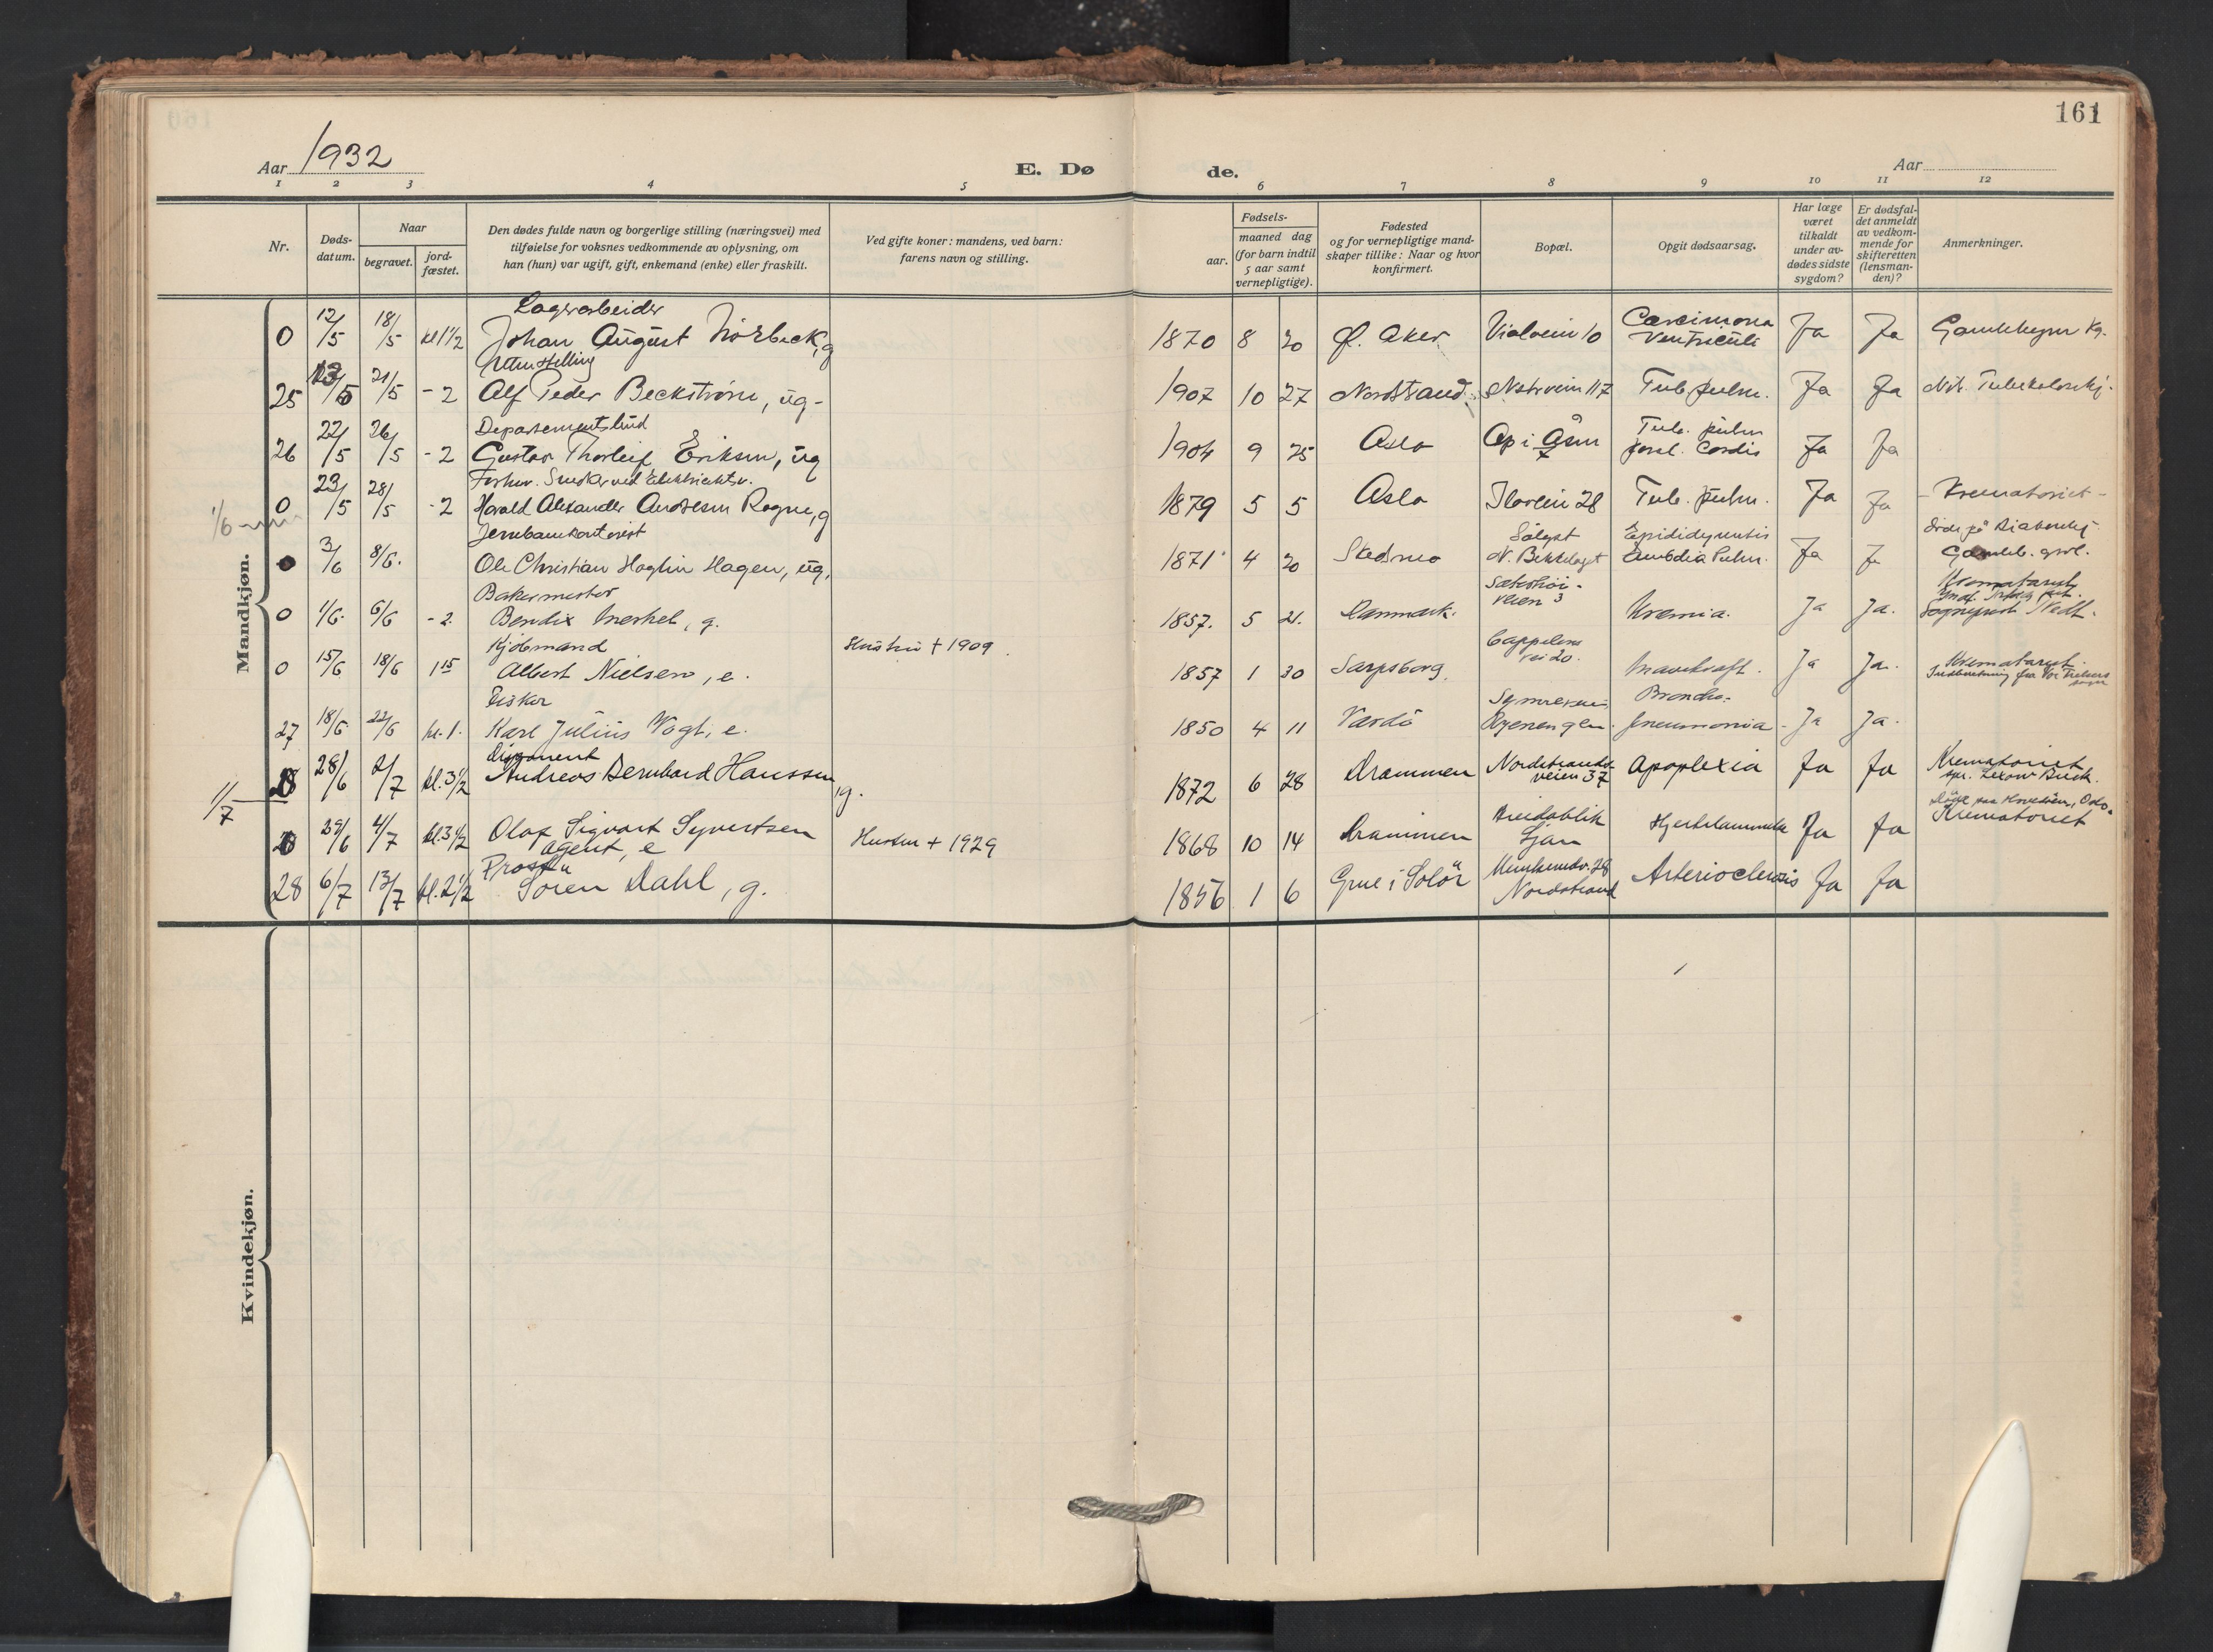 161
Aar 1932
E. Dø de.
Aar
1 2 3 4 5 6 7 8 9 10 11 12
Nr.
Døds-
datum.
Naar
begravet.
jord-
fæstet.
Den dødes fulde navn og borgerlige stilling (næringsvei) med
tilføielse for voksnes vedkommende av oplysning, om
han (hun) var ugift, gift, enkemand (enke) eller fraskilt.
Ved gifte koner: mandens, ved barn:
farens navn og stilling.
Fødsels-
aar.
maaned dag
(for barn indtil
5 aar samt
vernepligtige).
Fødested
og for vernepligtige mand-
skaper tillike: Naar og hvor
konfirmert.
Bopæl.
Opgit dødsaarsag.
Har læge
været
tilkaldt
under av-
dødes sidste
sygdom?
Er dødsfal-
det anmeldt
av vedkom-
mende for
skifteretten
(lensman-
den)?
Anmerkninger.
Mandkjøn.
Lagerarbeider
0 12/5 18/5 kl 1 1/2 Johan August Nörbeck, g 1870 8 20 Ø. Aker 10 Carcinoma Ventriculi Ja Ja
Uten stilling
25 13/5 21/5 - 2 Alf Peder Beckström, ug - 1907 10 27 Nordstrand 117 Tub. pulm. Ja Ja
26 22/5 26/5 - 2 Gustav Thorleif Eriksen, ug 1904 9 25 Oslo Tub. pulm Cordis Ja Ja
1/6
0 23/5 28/5 - 2 Harald Alexander Andresen Rogne, g 1879 5 5 Oslo 28 Tub. pulm. Ja Ja - Krematoriet -
Jernbanekontorist
3/6 8/6. Ole Christian Hagen, ug. 1871 4 20 Skedsmo N. Bekkelaget Pulm. Ja Ja
Bakermester
0 1/6. 6/6 - 2. Bendix Merkel, g. 1857. 5 21. Danmark. veien 3 Uremia. Ja Ja.
Kjöbmand
0 15/6 18/6 1 15 Albert Nielsen, e. Hustru + 1909. 1857 1 30 Sarpsborg. Cappelens vei 20. Mavekræft. Ja Ja. Krematoriet.
Fisker
27 18/6. 22/6 kl. 1. Karl Julius Vogt, e. 1850 4 11 Vardö Broncho-pneumonia - Ja Ja.
Disponent
28/6 2/7 kl. 3 1/2 Andreas Bernhard Hanssen, g. 1872 6 28 Drammen Nordstrands-veien 37 Apoplexia Ja Ja Krematoriet
1/7
29/6 4/7 kl. 3 1/2 Olaf Sigvart Syvertsen Hustru + 1929 1868 10 14 Drammen Breidablik Ljan Hjertelammelse Ja Ja Krematoriet
agent, e
28 6/7 13/7 kl. 2 1/2 Sören Dahl, g. 1856 1 6 Grue i Solör Nordstrand Arteriosclerosis Ja Ja
Kvindekjøn.